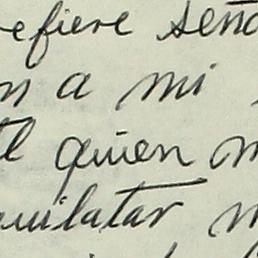 refiere seño
n a mi
el quien m
quilatar m